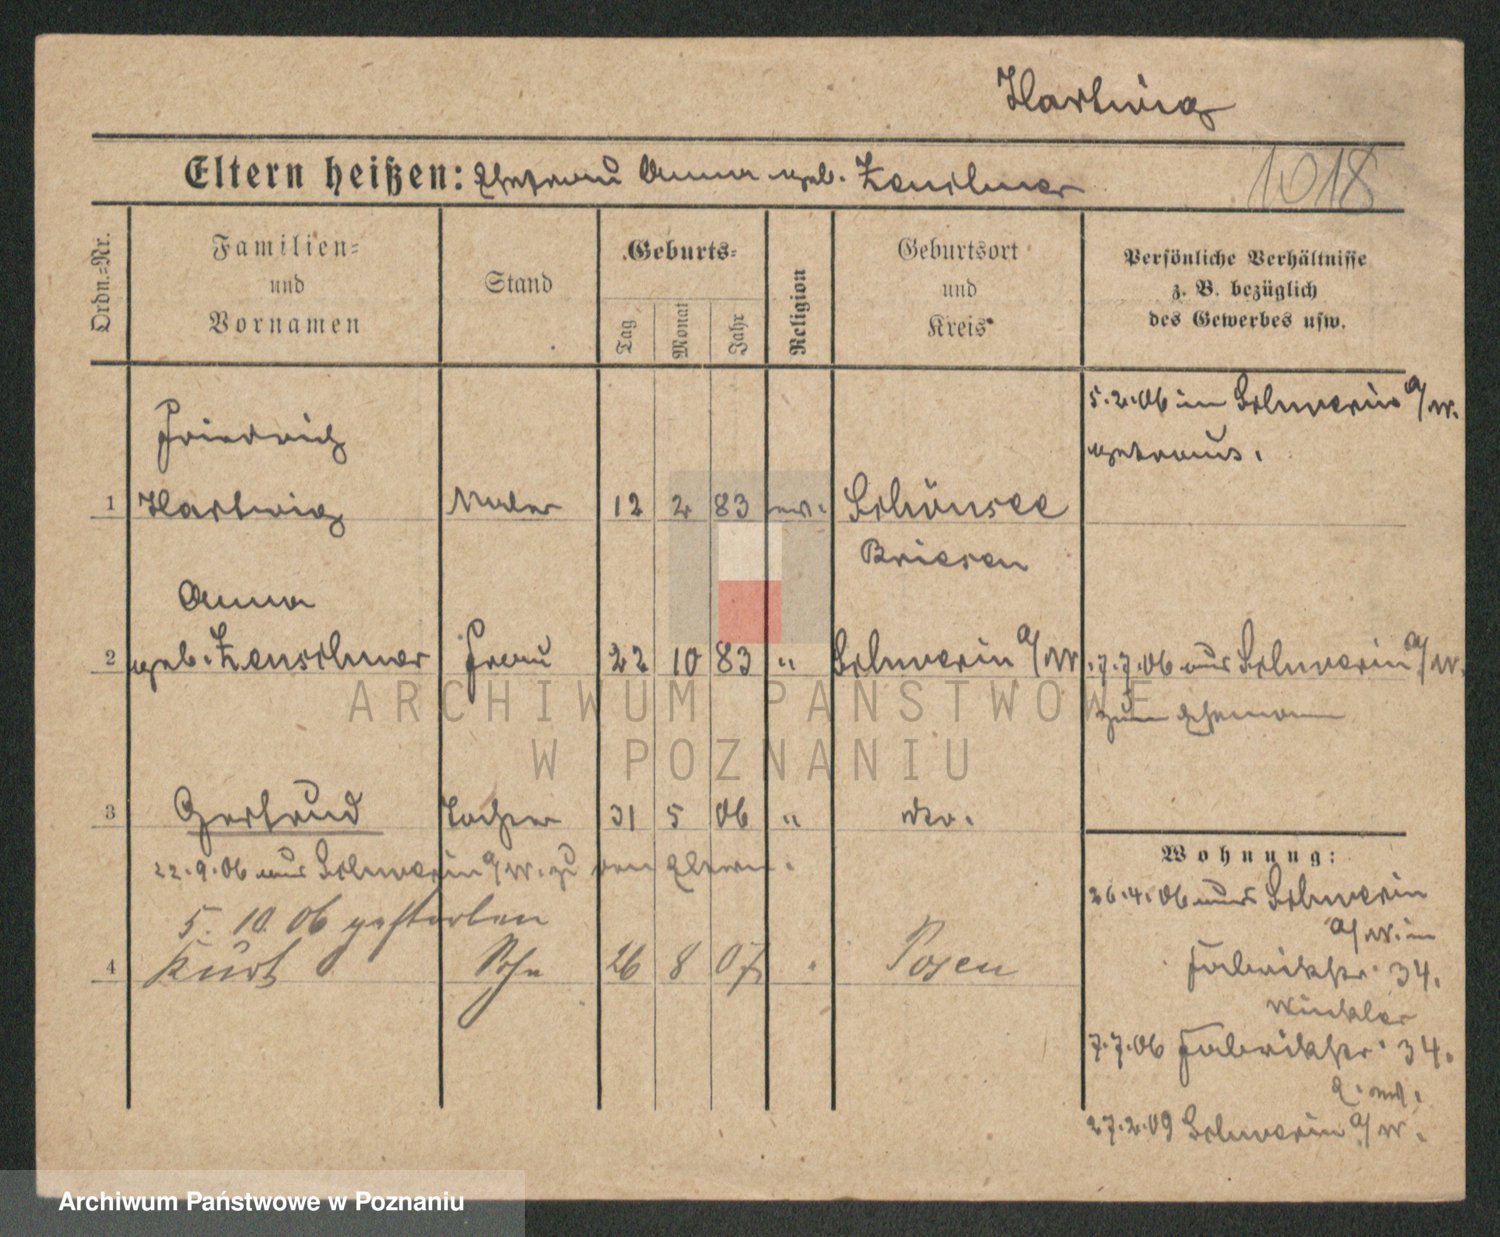 Hartwig
Eltern heißen: Ehefrau Anna geb. Zenschner
1018
Ordn.=Nr.
Familien=
und
Vornamen
Stand
Geburts=
Tag
Monat
Jahr
Religion
Geburtsort
und
Kreis
Persönliche Verhältnisse
z. B. bezüglich
des Gewerbes usw.
Friedrich
5.2.06 in Schwerin a/W.
getraut.
1 Hartwig Maler 12 2 83 ev. Schönsee
Briesen
Anna
2 geb. Zenschner Frau 22 10 83 " Schwerin a/W 7.7.06 aus Schwerin a/W.
zum Ehemann
3 Gertrud Tochter 31 5 06 " do.
22.9.06 aus Schwerin a/W. zu den Eltern.
5. 10. 06 gestorben
4 Kurt Sohn 26 8 07 Posen
Wohnung:
26.4.06 aus Schwerin
a/W. in
Fabrikstr. 34.
Winkler
7.7.06 Fabrikstr. 34.
27.2.09 Schwerin a/W.
ARCHIWUM PAŃSTWOWE
W POZNANIU
Archiwum Państwowe w Poznaniu